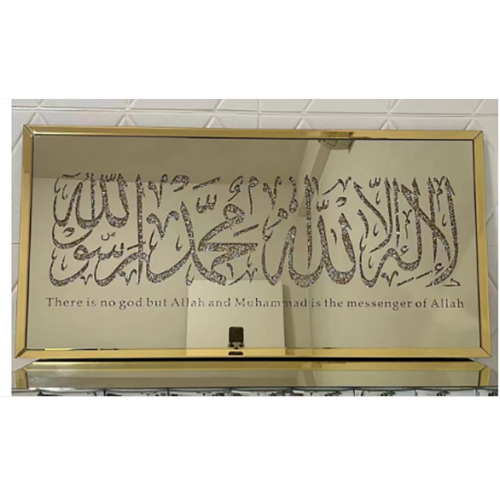 لا إله إلا الله محمد رسول الله
There is no god but Allah and Muhammad is the messenger of Allah